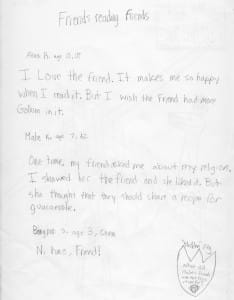 Friends reading Friends
age
I Love the friend. It makes me so happy
when I read it. But I wish the Friend had more
in it.
age
One time, my friend asked me about my religion.
I showed her the friend and she liked it. But
she thought that they should share a recipe for
guacamole.
age 3,
Ni hao, Friend!